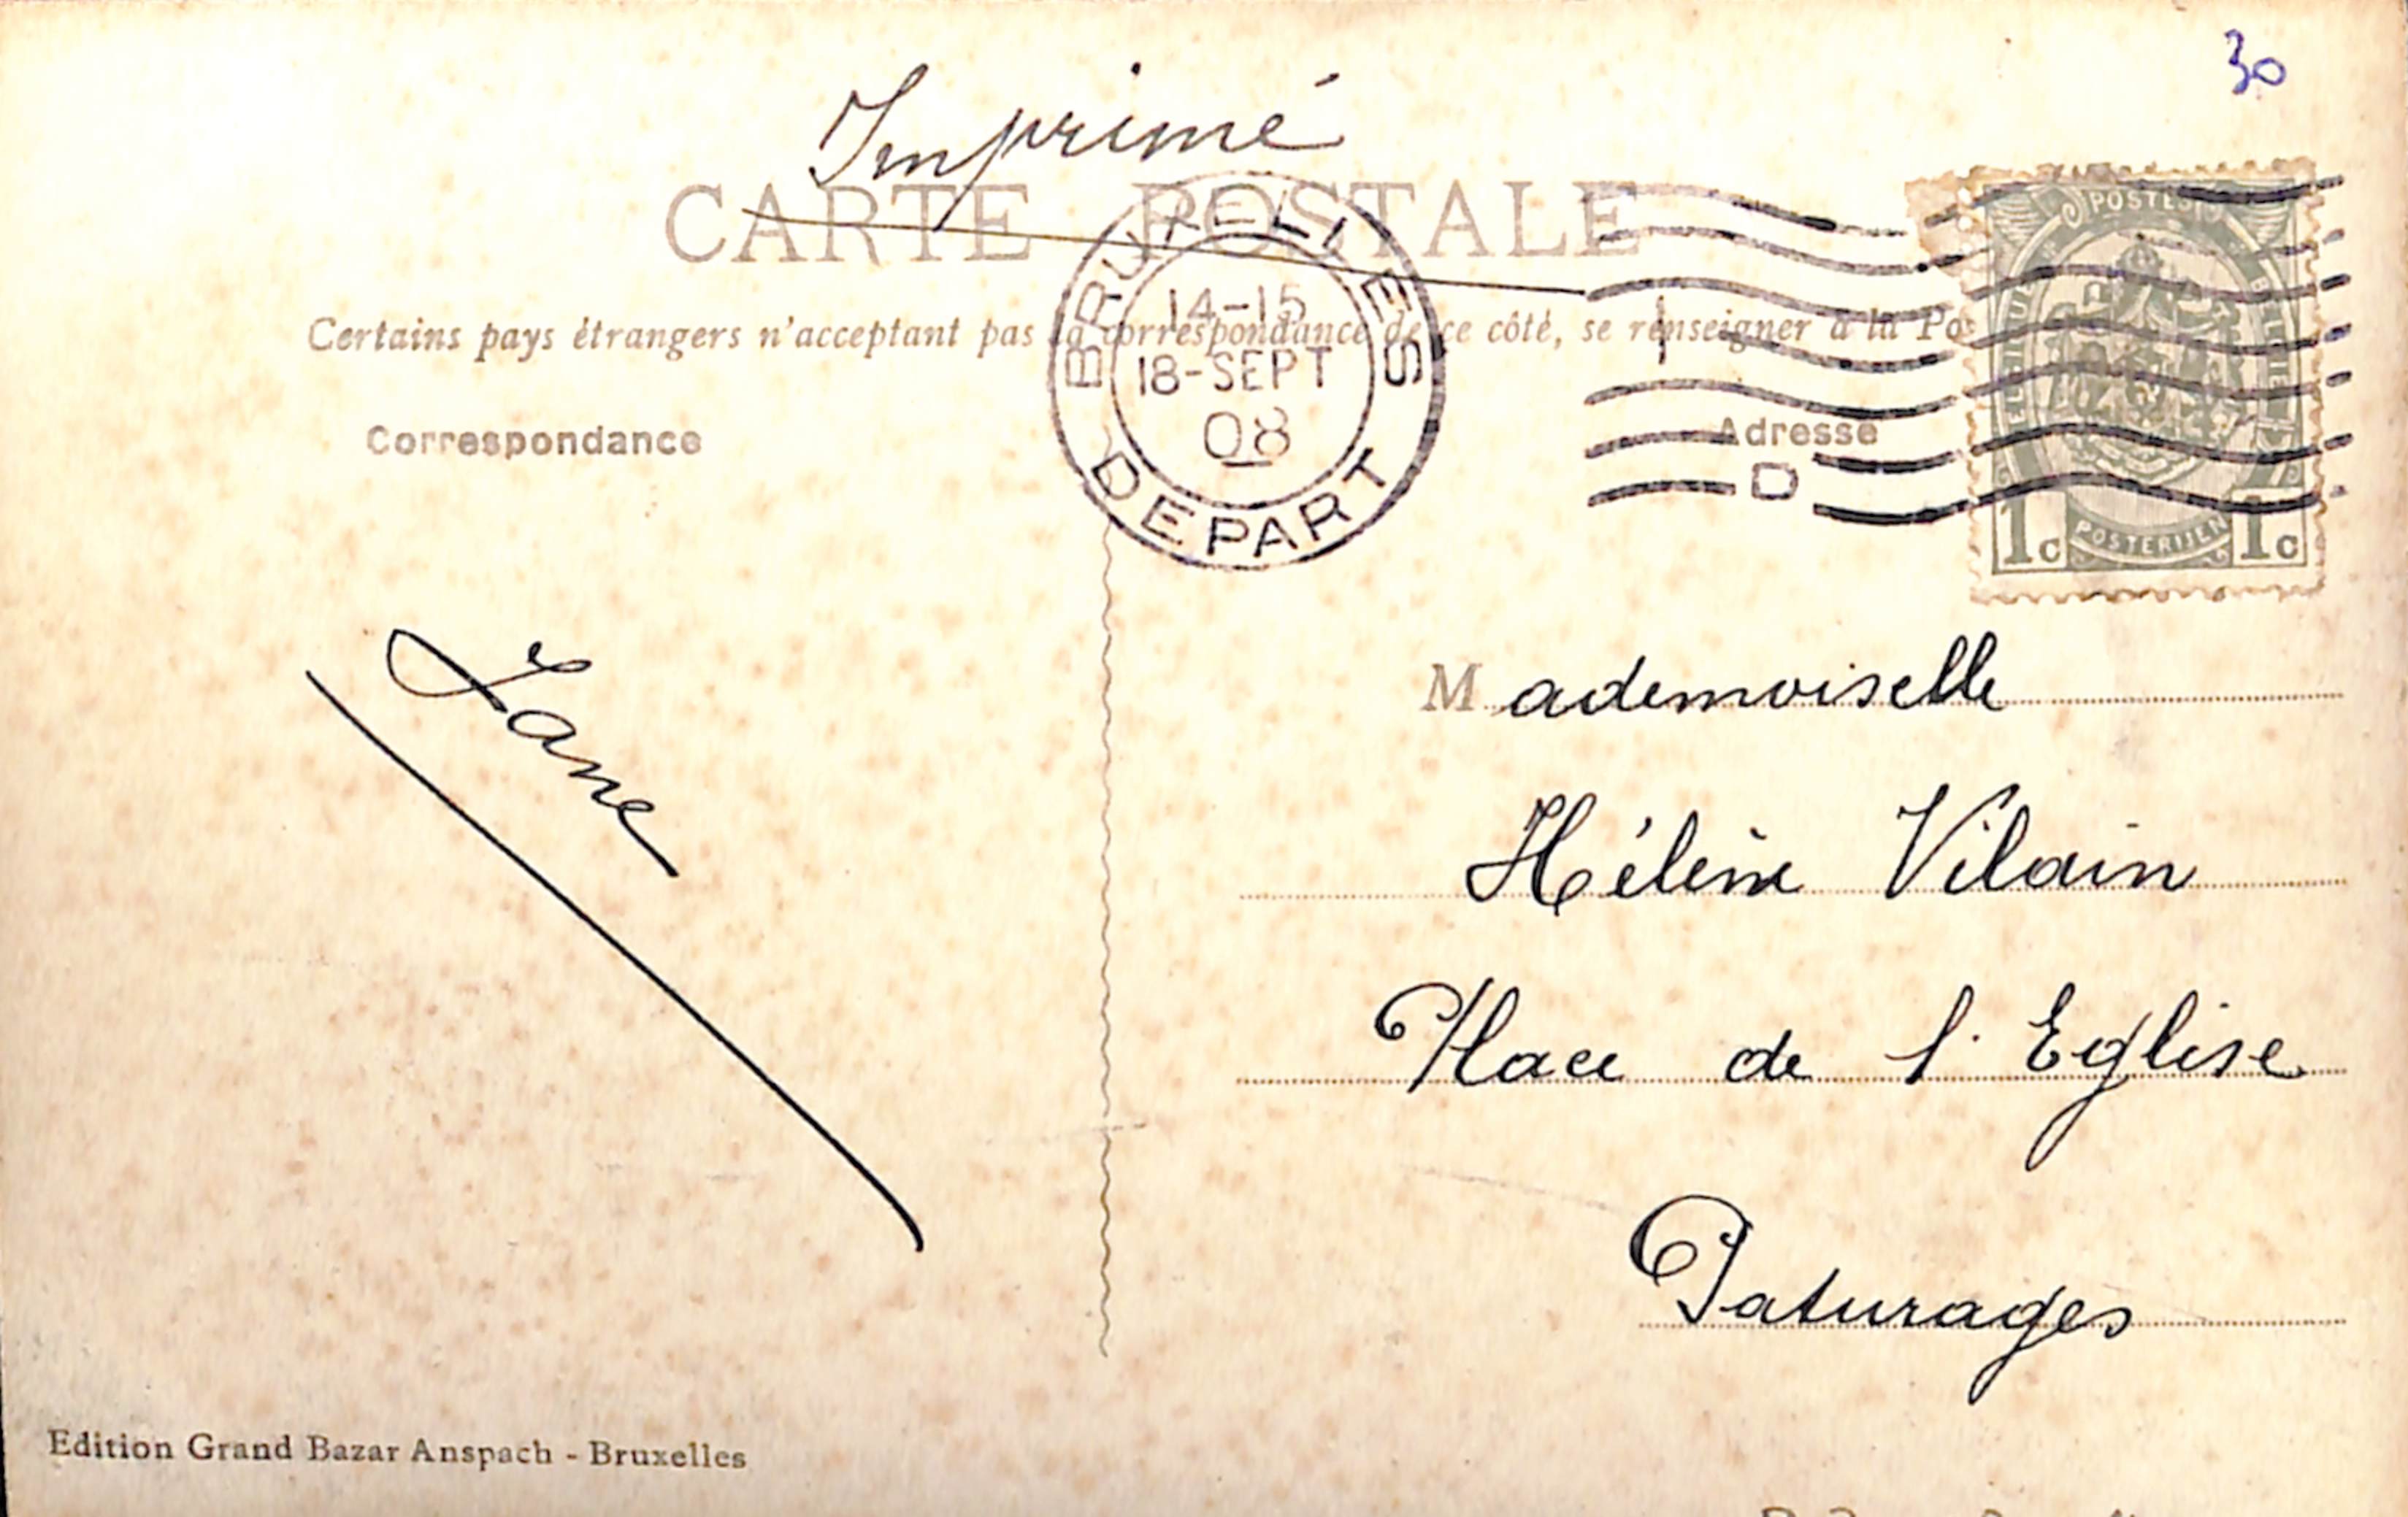 30
Imprimé
CARTE POSTALE
Certains pays étrangers n'acceptant pas la correspondance de ce côté, se renseigner à la
BRUXELLES
14-15
18-SEPT
08
DEPART
POSTES
POSTERIJEN
1c 1c
Correspondance
Adresse
D
Jane
Mademoiselle
Hélène Vilain
Place de l'Eglise
Paturages
Edition Grand Bazar Anspach - Bruxelles